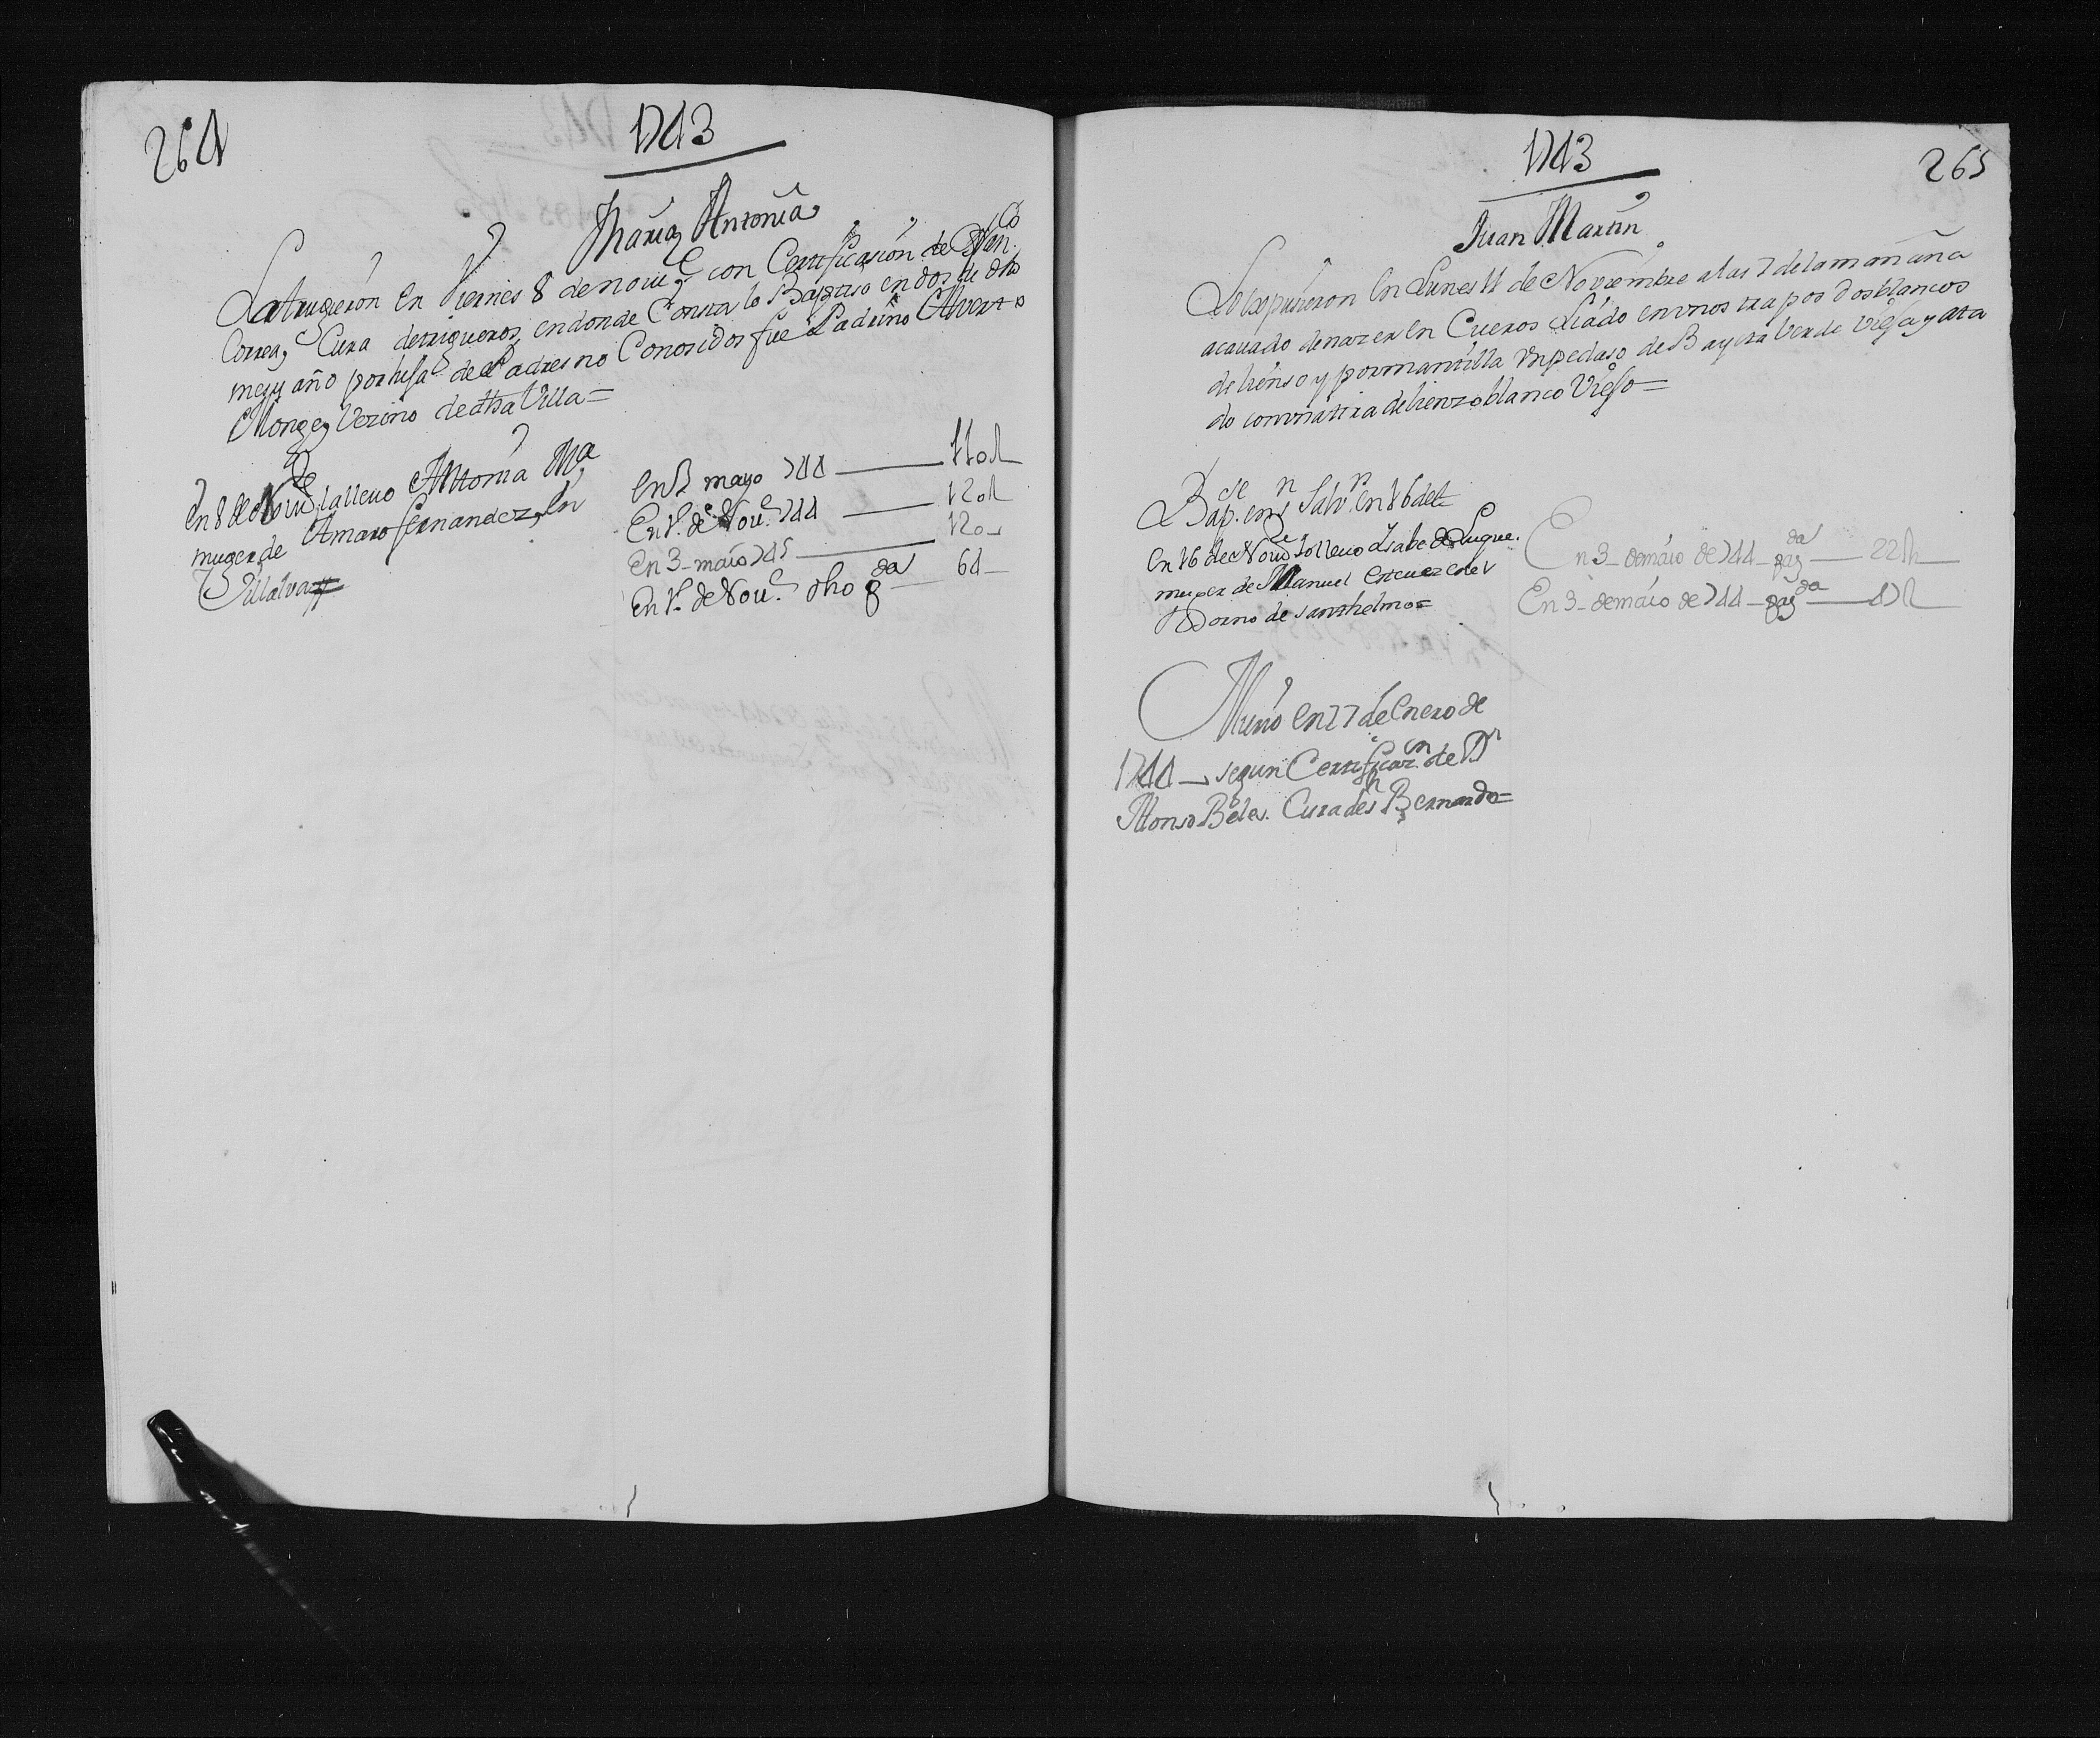 264
1743
Maria Antonia
La trugeron en Viernes 8 de noviᵉ con Certificasion de Dⁿ Franᶜᵒ
Correa, Cura de trigueros, en donde Consta lo Baptiso en dos de dho
mes y año por hija de Padres no Conosidos fue Padrino Alverto
Monge, Vezino de dha Villa =
en 8 de Noviᵉ la llevo Antonia Mᵃ
muger de Amaro fernandez, en
Villalva
en 3 mayo 744 — 110 R
En 1º de Nouᵉ 744 — 120 R
En 3 - maio 745 — 120
En 1º de Nouᵉ dho pᵈᵃ — 64
1743
265
Juan Martin
Lo expusieron en Lunes 11 de Noviembre a las 7 de la mañana
acauado de nazer en Cueros Liado en vnos trapos dos blancos
de lienso y por mantilla vn pedaso de Bayeta Verde vieja y ata
do con vna tira de lienzo blanco Viejo =
Bapᵈᵉ en Sⁿ Salvʳ en 16 del
en 16 de Noviᵉ lo lleuo Isabel de Luque
muger de Manuel Esteuez en el
Horno de santhelmo =
En 3 - de maio de 744 - pagᵈᵃ — 22 R
En 3 - de maio de 744 - pagᵈᵃ — 47 R
Murio en 27 de Enero de
1744 — segun Certificazᵒⁿ de Dⁿ
Alonso Beles. Cura de Sⁿ Bernardo =